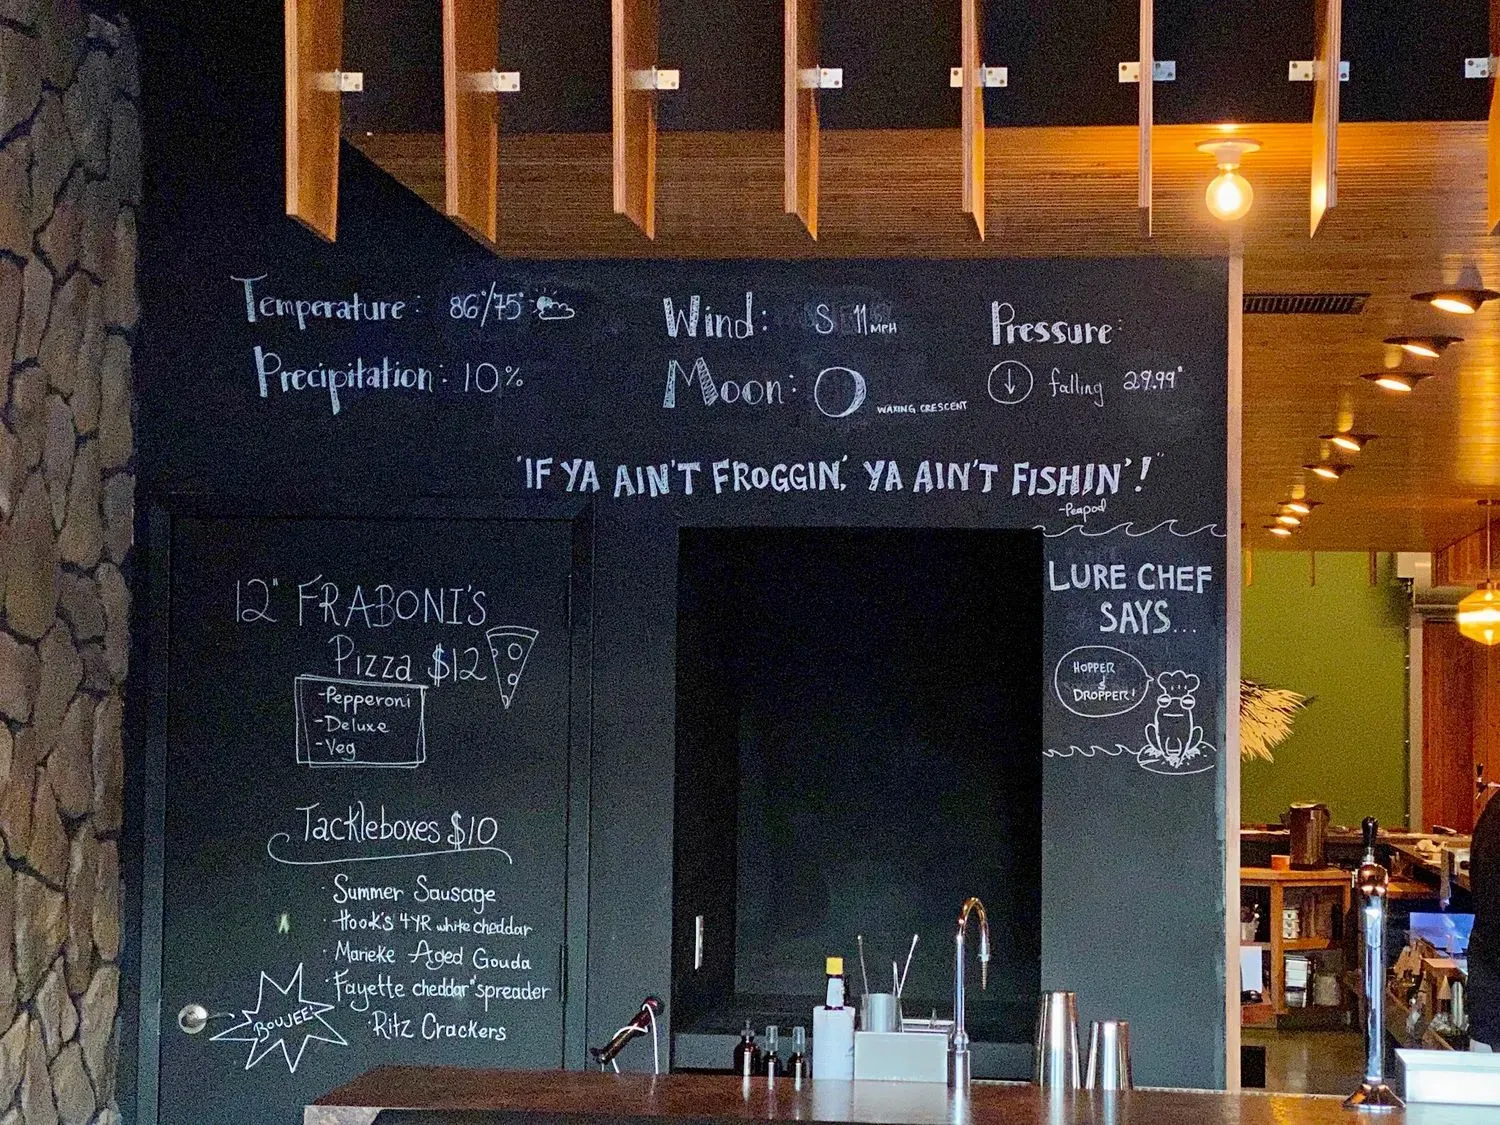 Temperature: 86°/75°
Precipitation: 10%
Wind: S 11 MPH
Moon: WAXING CRESCENT
Pressure:
↓ falling 29.99"
"IF YA AIN'T FROGGIN', YA AIN'T FISHIN'!"
-Peapod
LURE CHEF
SAYS...
HOPPER
&
DROPPER!
12" FRABONI'S
Pizza $12
-Pepperoni
-Deluxe
-Veg
Tackleboxes $10
· Summer Sausage
· Hook's 4YR white cheddar
· Marieke Aged Gouda
· Fayette cheddar "spreader
· Ritz Crackers
BOUJEE!